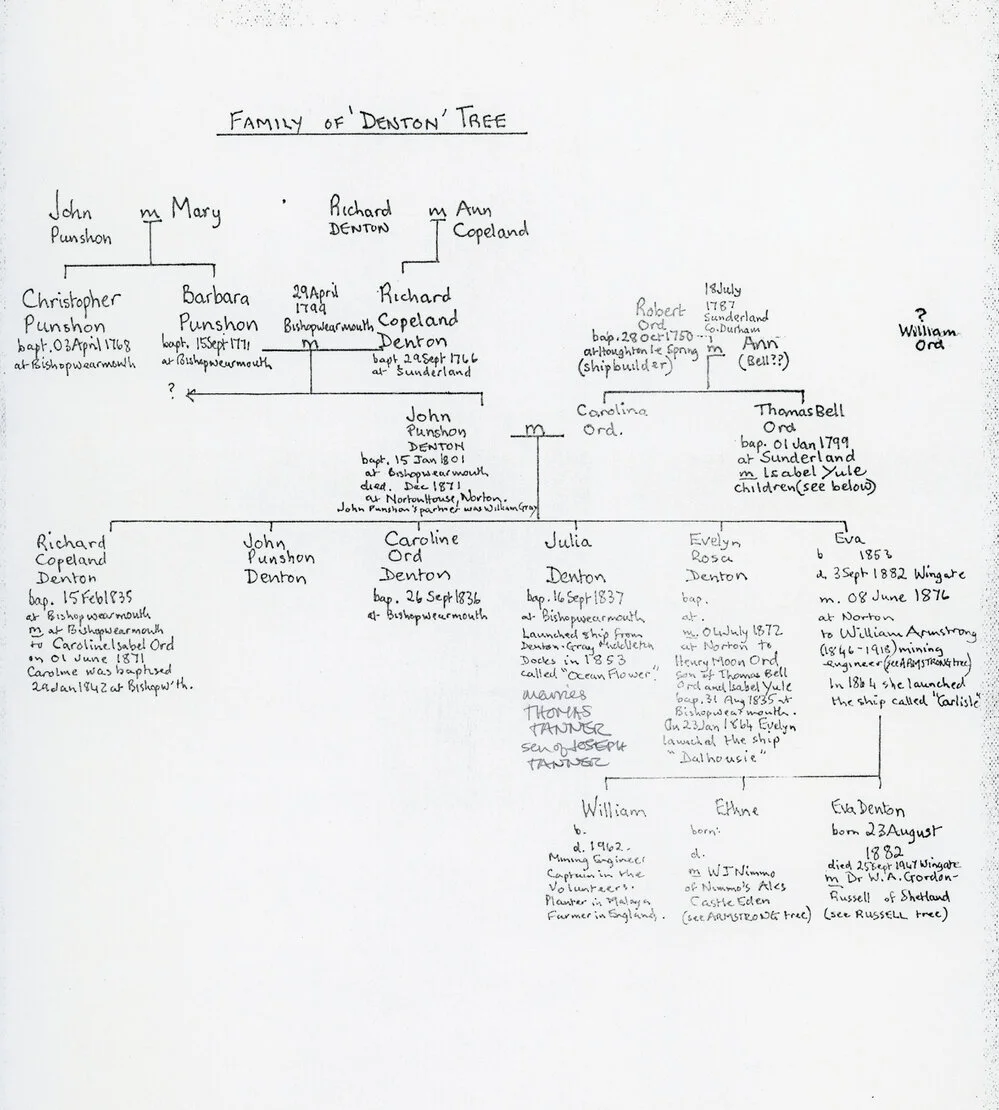 FAMILY OF 'DENTON' TREE
John
Punshon
m Mary
Richard
DENTON
m Ann
Copeland
Christopher
Punshon
bapt. 03 April 1768
at Bishopwearmouth
Barbara
Punshon
bapt. 15 Sept 1771
at Bishopwearmouth
29 April
1799
Bishopwearmouth
m
Richard
Copeland
Denton
bapt 29 Sept 1766
at Sunderland
Robert
Ord
bap. 28 Oct 1750
at Houghton le Spring
(shipbuilder)
18 July
1787
Sunderland
Co. Durham
m
Ann
(Bell??)
?
William
Ord
?
John
Punshon
DENTON
bapt. 15 Jan 1801
at Bishopwearmouth
died. Dec 1871
at Norton House, Norton.
John Punshon's partner was William Gray
m
Carolina
Ord.
Thomas Bell
Ord
bap. 01 Jan 1799
at Sunderland
m Isabel Yule
children (see below)
Richard
Copeland
Denton
bap. 15 Feb 1835
at Bishopwearmouth
m at Bishopwearmouth
to Caroline Isabel Ord
on 01 June 1871
Caroline was baptised
29 Jan 1842 at Bishopw'th.
John
Punshon
Denton
Caroline
Ord
Denton
bap. 26 Sept 1836
at Bishopwearmouth
Julia
Denton
bap. 16 Sept 1837
at Bishopwearmouth
Launched ship from
Denton-Gray Middleton
Docks in 1853
called "Ocean Flower".
marries
THOMAS
TANNER
son of JOSEPH
TANNER
Evelyn
Rosa
Denton
bap.
at.
m. 04 July 1872
at Norton to
Henry Moon Ord
son of Thomas Bell
Ord and Isabel Yule
bap. 31 Aug 1835 at
Bishopwearmouth.
On 23 Jan 1864 Evelyn
launched the ship
"Dalhousie"
Eva
b 1853
d. 3 Sept 1882 Wingate
m. 08 June 1876
at Norton
to William Armstrong
(1846-1918) mining
engineer (see ARMSTRONG tree)
In 1864 she launched
the ship called "Carlisle"
William
b.
d. 1962.
Mining Engineer
Captain in the
Volunteers.
Planter in Malaya
Farmer in England.
Ethne
born:
d.
m WJ Nimmo
of Nimmo's Ales
Castle Eden
(see ARMSTRONG tree)
Eva Denton
born 23 August
1882
died 25 Sept 1947 Wingate
m Dr W. A. Gordon-
Russell of Shetland
(see RUSSELL tree)